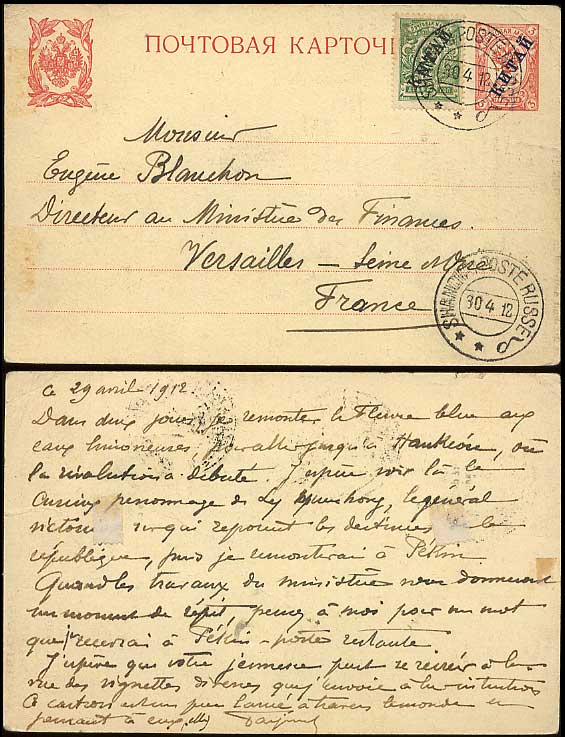 ПОЧТОВАЯ КАРТОЧ
КИТАЙ
SHANGHAI POSTE RUSSE
30 4 12
Monsieur
Eugène Blanchon
Directeur au Ministère des Finances.
Versailles – Seine
France
SHANGHAI POSTE RUSSE
30 4 12
Ce 29 avril 1912
Dans deux jours je remonte le Fleuve bleu aux
eaux limoneuses, pour aller jusqu'à Hankéou, où
la révolution a débuté. J'espère voir là le
curieux personnage de Ly, le général
sur qui reposent les destinées la
république, puis je remonterai à Pékin
Quand les travaux du ministère vous donneront
un moment de répit, pensez à moi pour un mot
que recevrai à Pékin – poste restante
J'espère que votre jeunesse peut se à la
vue des vignettes que j'envoie à
à travers le monde en
pensant à